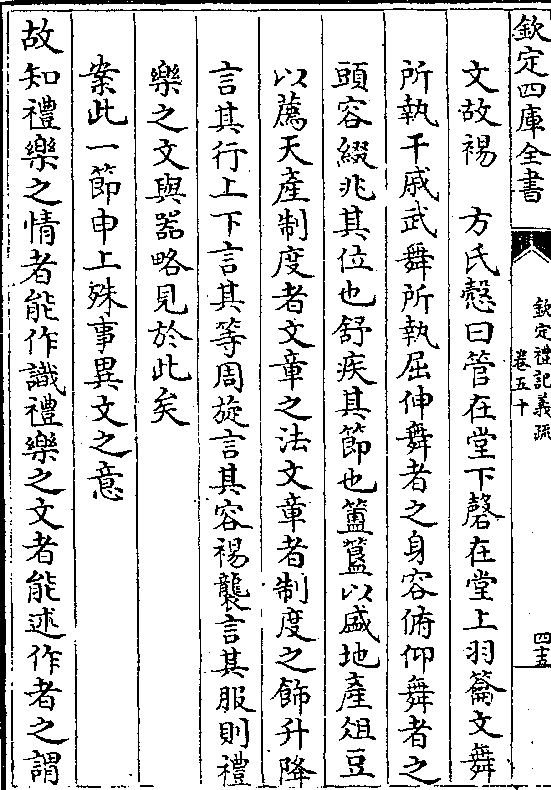 欽定四庫全書
欽定禮記義疏
卷五十
四十五
文故裼　方氏慤曰管在堂下磬在堂上羽籥文舞
所執干戚武舞所執屈伸舞者之身容俯仰舞者之
頭容綴兆其位也舒疾其節也簠簋以盛地產俎豆
以薦天產制度者文章之法文章者制度之飾升降
言其行上下言其等周旋言其容裼襲言其服則禮
樂之文與器略見於此矣
案此一節申上殊事異文之意
故知禮樂之情者能作識禮樂之文者能述作者之謂